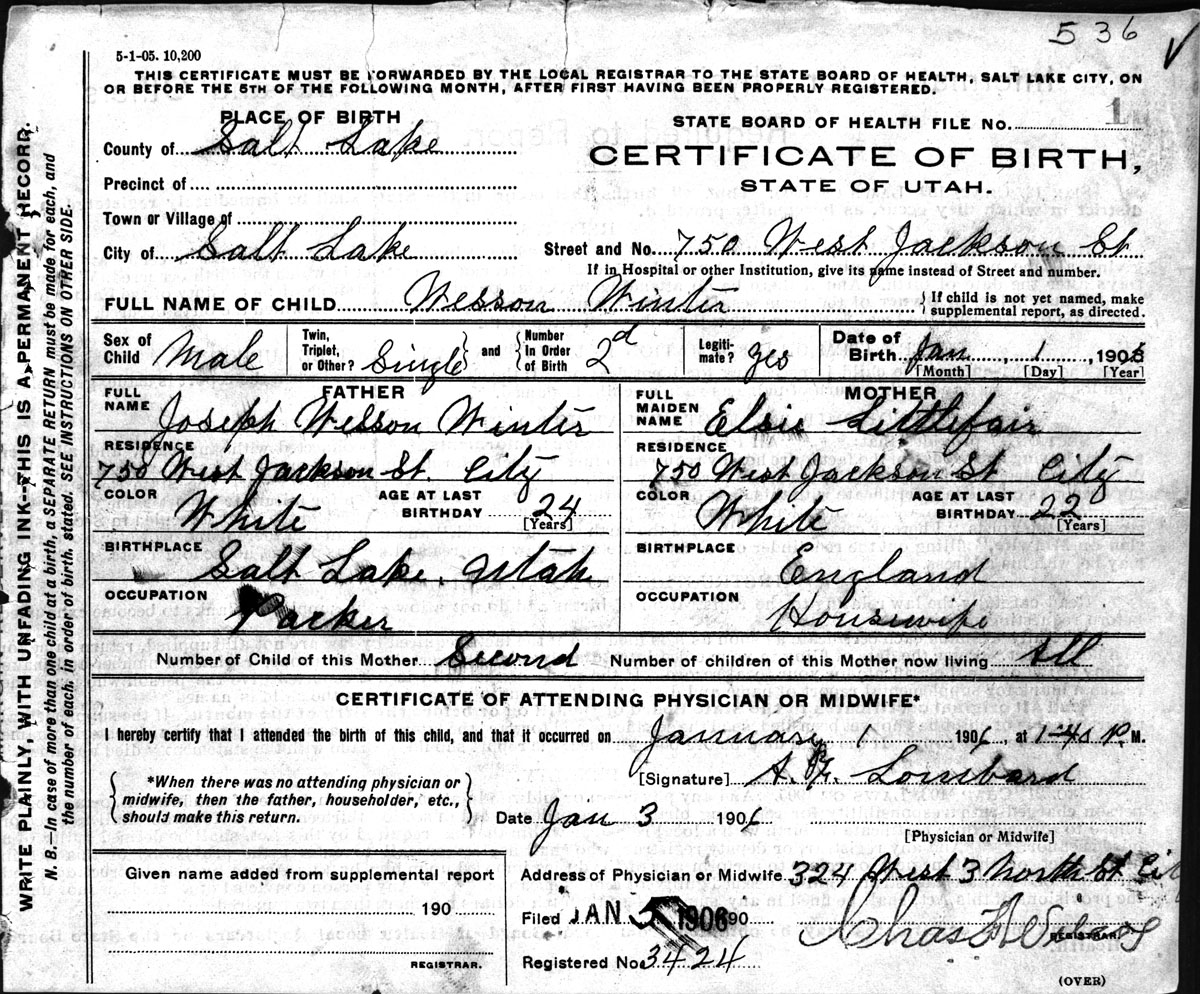 536
5-1-05. 10,200
THIS CERTIFICATE MUST BE FORWARDED BY THE LOCAL REGISTRAR TO THE STATE BOARD OF HEALTH, SALT LAKE CITY, ON
OR BEFORE THE 5TH OF THE FOLLOWING MONTH, AFTER FIRST HAVING BEEN PROPERLY REGISTERED.
PLACE OF BIRTH
STATE BOARD OF HEALTH FILE No. 1
County of Salt Lake
CERTIFICATE OF BIRTH,
STATE OF UTAH.
Precinct of
Town or Village of
City of Salt Lake
Street and No. 750 West Jackson St
If in Hospital or other Institution, give its name instead of Street and number.
FULL NAME OF CHILD Wesson Winter
If child is not yet named, make
supplemental report, as directed.
Sex of
Child Male
Twin,
Triplet,
or Other? Single
and
Number
in Order
of Birth 2d
Legiti-
mate? yes
Date of
Birth Jan, 1, 1906
[Month] [Day] [Year]
FATHER
FULL
NAME
Joseph Wesson Winter
RESIDENCE
750 West Jackson St. City
COLOR
White
AGE AT LAST
BIRTHDAY 24
[Years]
BIRTHPLACE
Salt Lake. Utah
OCCUPATION
Packer
MOTHER
FULL
MAIDEN
NAME
Elsie Littlefair
RESIDENCE
750 West Jackson St City
COLOR
White
AGE AT LAST
BIRTHDAY 22
[Years]
BIRTHPLACE
England
OCCUPATION
Housewife
Number of Child of this Mother Second Number of children of this Mother now living all
CERTIFICATE OF ATTENDING PHYSICIAN OR MIDWIFE*
I hereby certify that I attended the birth of this child, and that it occurred on January 1 1906, at 1-40 P. M.
*When there was no attending physician or
midwife, then the father, householder, etc.,
should make this return.
[Signature] Lombard
Date Jan 3 1906
[Physician or Midwife]
Given name added from supplemental report
190
REGISTRAR.
Address of Physician or Midwife 324 West 3 North St
Filed JAN 5 1906 190
Chas
REGISTRAR.
Registered No. 3424
(OVER)
WRITE PLAINLY, WITH UNFADING INK--THIS IS A PERMANENT RECORD.
N. B.—In case of more than one child at a birth, a SEPARATE RETURN must be made for each, and
the number of each, in order of birth, stated. SEE INSTRUCTIONS ON OTHER SIDE.